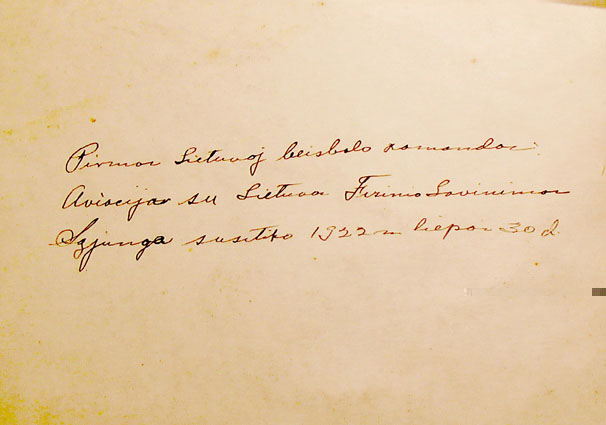 Pirmos Lietuvoj beisbolo komandos:
Aviacijos su Lietuvos Fizinio Lavinimos
Sąjunga susitiko 1922 m liepos 30 d.